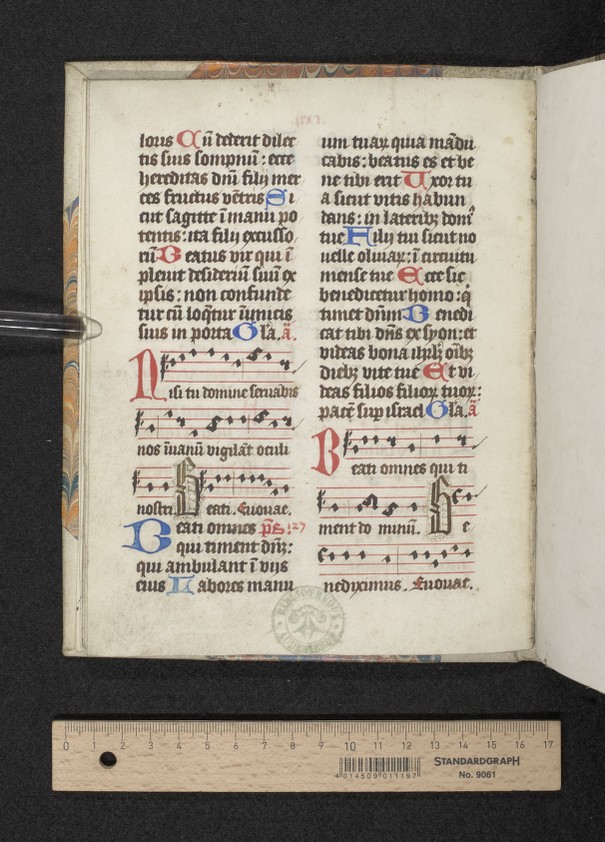 loris Cū dederit dilec
tis suis sompnū : ecce
hereditas dnī filij mer
ces fructus vētris Si
cut sagitte ī manu po
tentis : ita filij excusso
rū Beatus vir qui ī
pleuit desideriū suū ex
ipsis : non confunde
tur cū loq̄tur īimicis
suis in porta Gl̄a. ā.
Nisi tu domine seruabis
nos īuanū vigilāt oculi
nostri Beati. Euouae.
Beati omnes ps. 127
qui timent dn̄z :
qui ambulant ī vijs
eius Labores manu
um tuaꝝ quia mādu
cabis : beatus es et be
ne tibi erit Uxor tu
a sicut vitis habun
dans : in lateribꝫ dom᷒
tue Filij tui sicut no
uelle oliuaꝝ : ī circuitu
mense tue Ecce sic
benedicetur homo : q̇
timet dn̄m Benedi
cat tibi dn̄s ex syon : et
videas bona ihrl̄z oībꝫ
diebꝫ vite tue Et vi
deas filios filioꝝ tuoꝝ :
pacē sup israel Gl̄a. ā
Beati omnes qui ti
ment do minū. Be
nediximus. Euouae.
0 1 2 3 4 5 6 7 8 9 10 11 12 13 14 15 16 17
STANDARDGRAPH
4 014509 011197
No. 9061